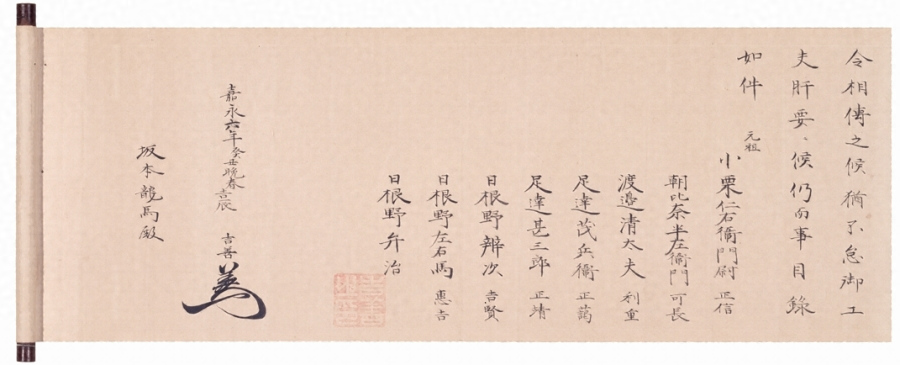 令相傳之候猶不怠御工
夫肝要、候仍而事目録
如件
元祖
小栗仁右衛門尉 正信
朝比奈半左衛門 可長
渡邉清太夫 利重
足達茂兵衛 正藹
足達甚三郎 正靖
日根野辨次 吉賢
日根野左右馬 惠吉
日根野弁治
嘉永六年癸丑晩春吉辰 吉善
坂本龍馬殿